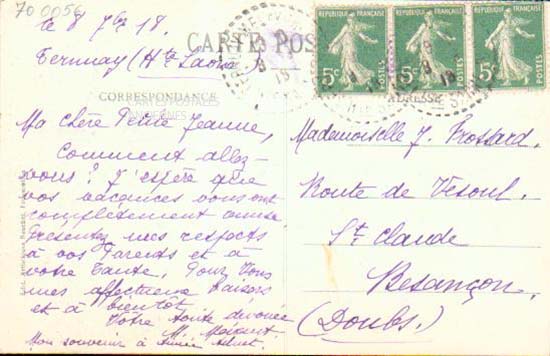 70 0056
le 8 7bre 18.
Ternuay (Hte Saône)
CARTE POS
CORRESPONDANCE
CARTES POSTALES
ANCIENNES
ADRESSE
RÉPUBLIQUE FRANÇAISE
5c
POSTES
RÉPUBLIQUE FRANÇAISE
5c
POSTES
RÉPUBLIQUE FRANÇAISE
5c
POSTES
Ma chère Petite Jeanne,
Comment allez-
vous ? J'espère que
vos vacances vous ont
complètement remise.
Présentez mes respects
à vos Parents et à
votre Tante. Pour Vous
mes affectueux baisers
et à bientôt
Votre toute dévouée
M.
Mon souvenir à Aimée
Mademoiselle J. Brossard.
Route de Vesoul.
St Claude
Besançon.
(Doubs.)